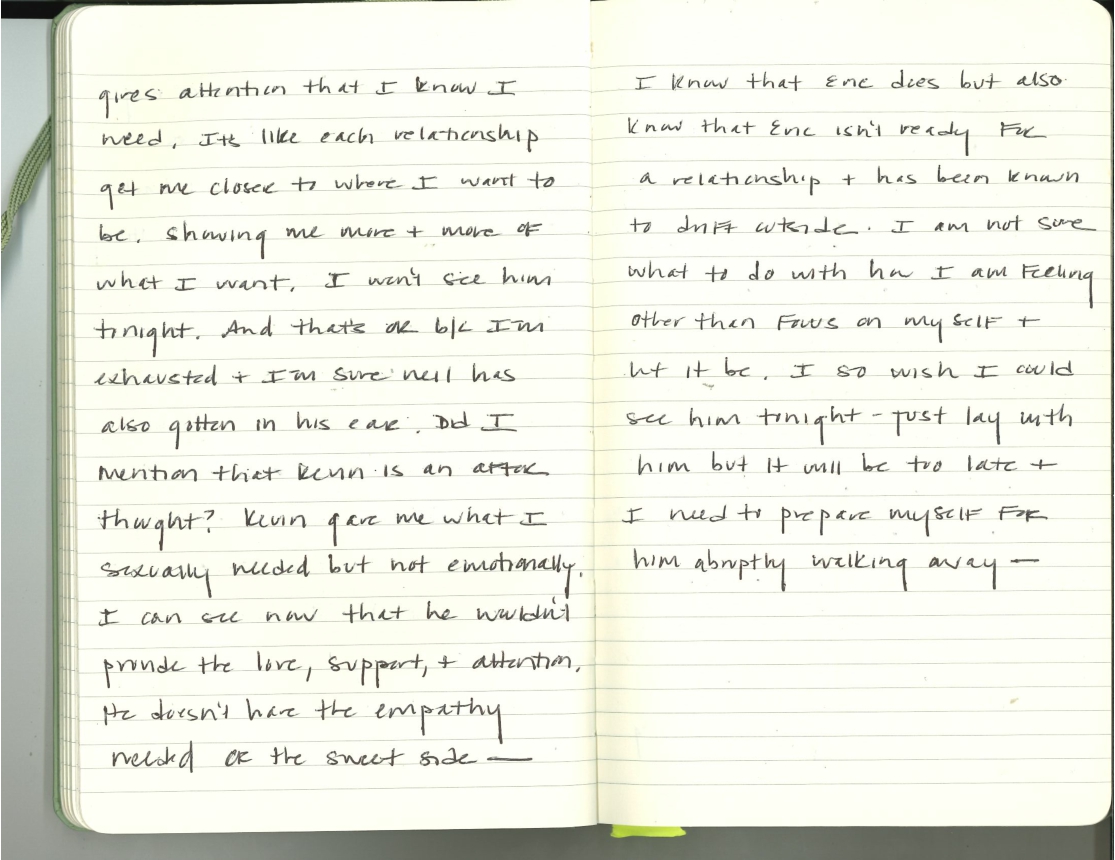 gives attention that I know I
need. Its like each relationship
get me closer to where I want to
be. Showing me more + more of
what I want. I won't see him
tonight. And that's ok b/c I'm
exhausted + I'm sure neil has
also gotten in his ear. Did I
mention that Kevin is an after
thought? Kevin gave me what I
sexually needed but not emotionally.
I can see now that he wouldn't
provide the love, support, + attention.
He doesn't have the empathy
needed or the sweet side —
I know that Eric does but also
know that Eric isn't ready for
a relationship + has been known
to drift outside. I am not sure
what to do with how I am feeling
other than focus on myself +
let it be. I so wish I could
see him tonight - just lay with
him but it will be too late +
I need to prepare myself for
him abruptly walking away —